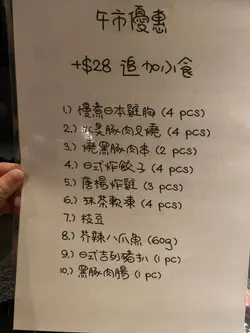 午市優惠
+$28 追加小食
1.) 慢煮日本雞胸 (4 pcs)
2.) 豚肉叉燒 (4 pcs)
3.) 燒黑豚肉串 (2 pcs)
4.) 日式炸餃子 (4 pcs)
5.) 唐揚炸雞 (3 pcs)
6.) 抹茶軟凍 (4 pcs)
7.) 枝豆
8.) 芥辣八爪魚 (60g)
9.) 日式吉列豬扒 (1 pc)
10.) 黑豚肉腸 (1 pc)